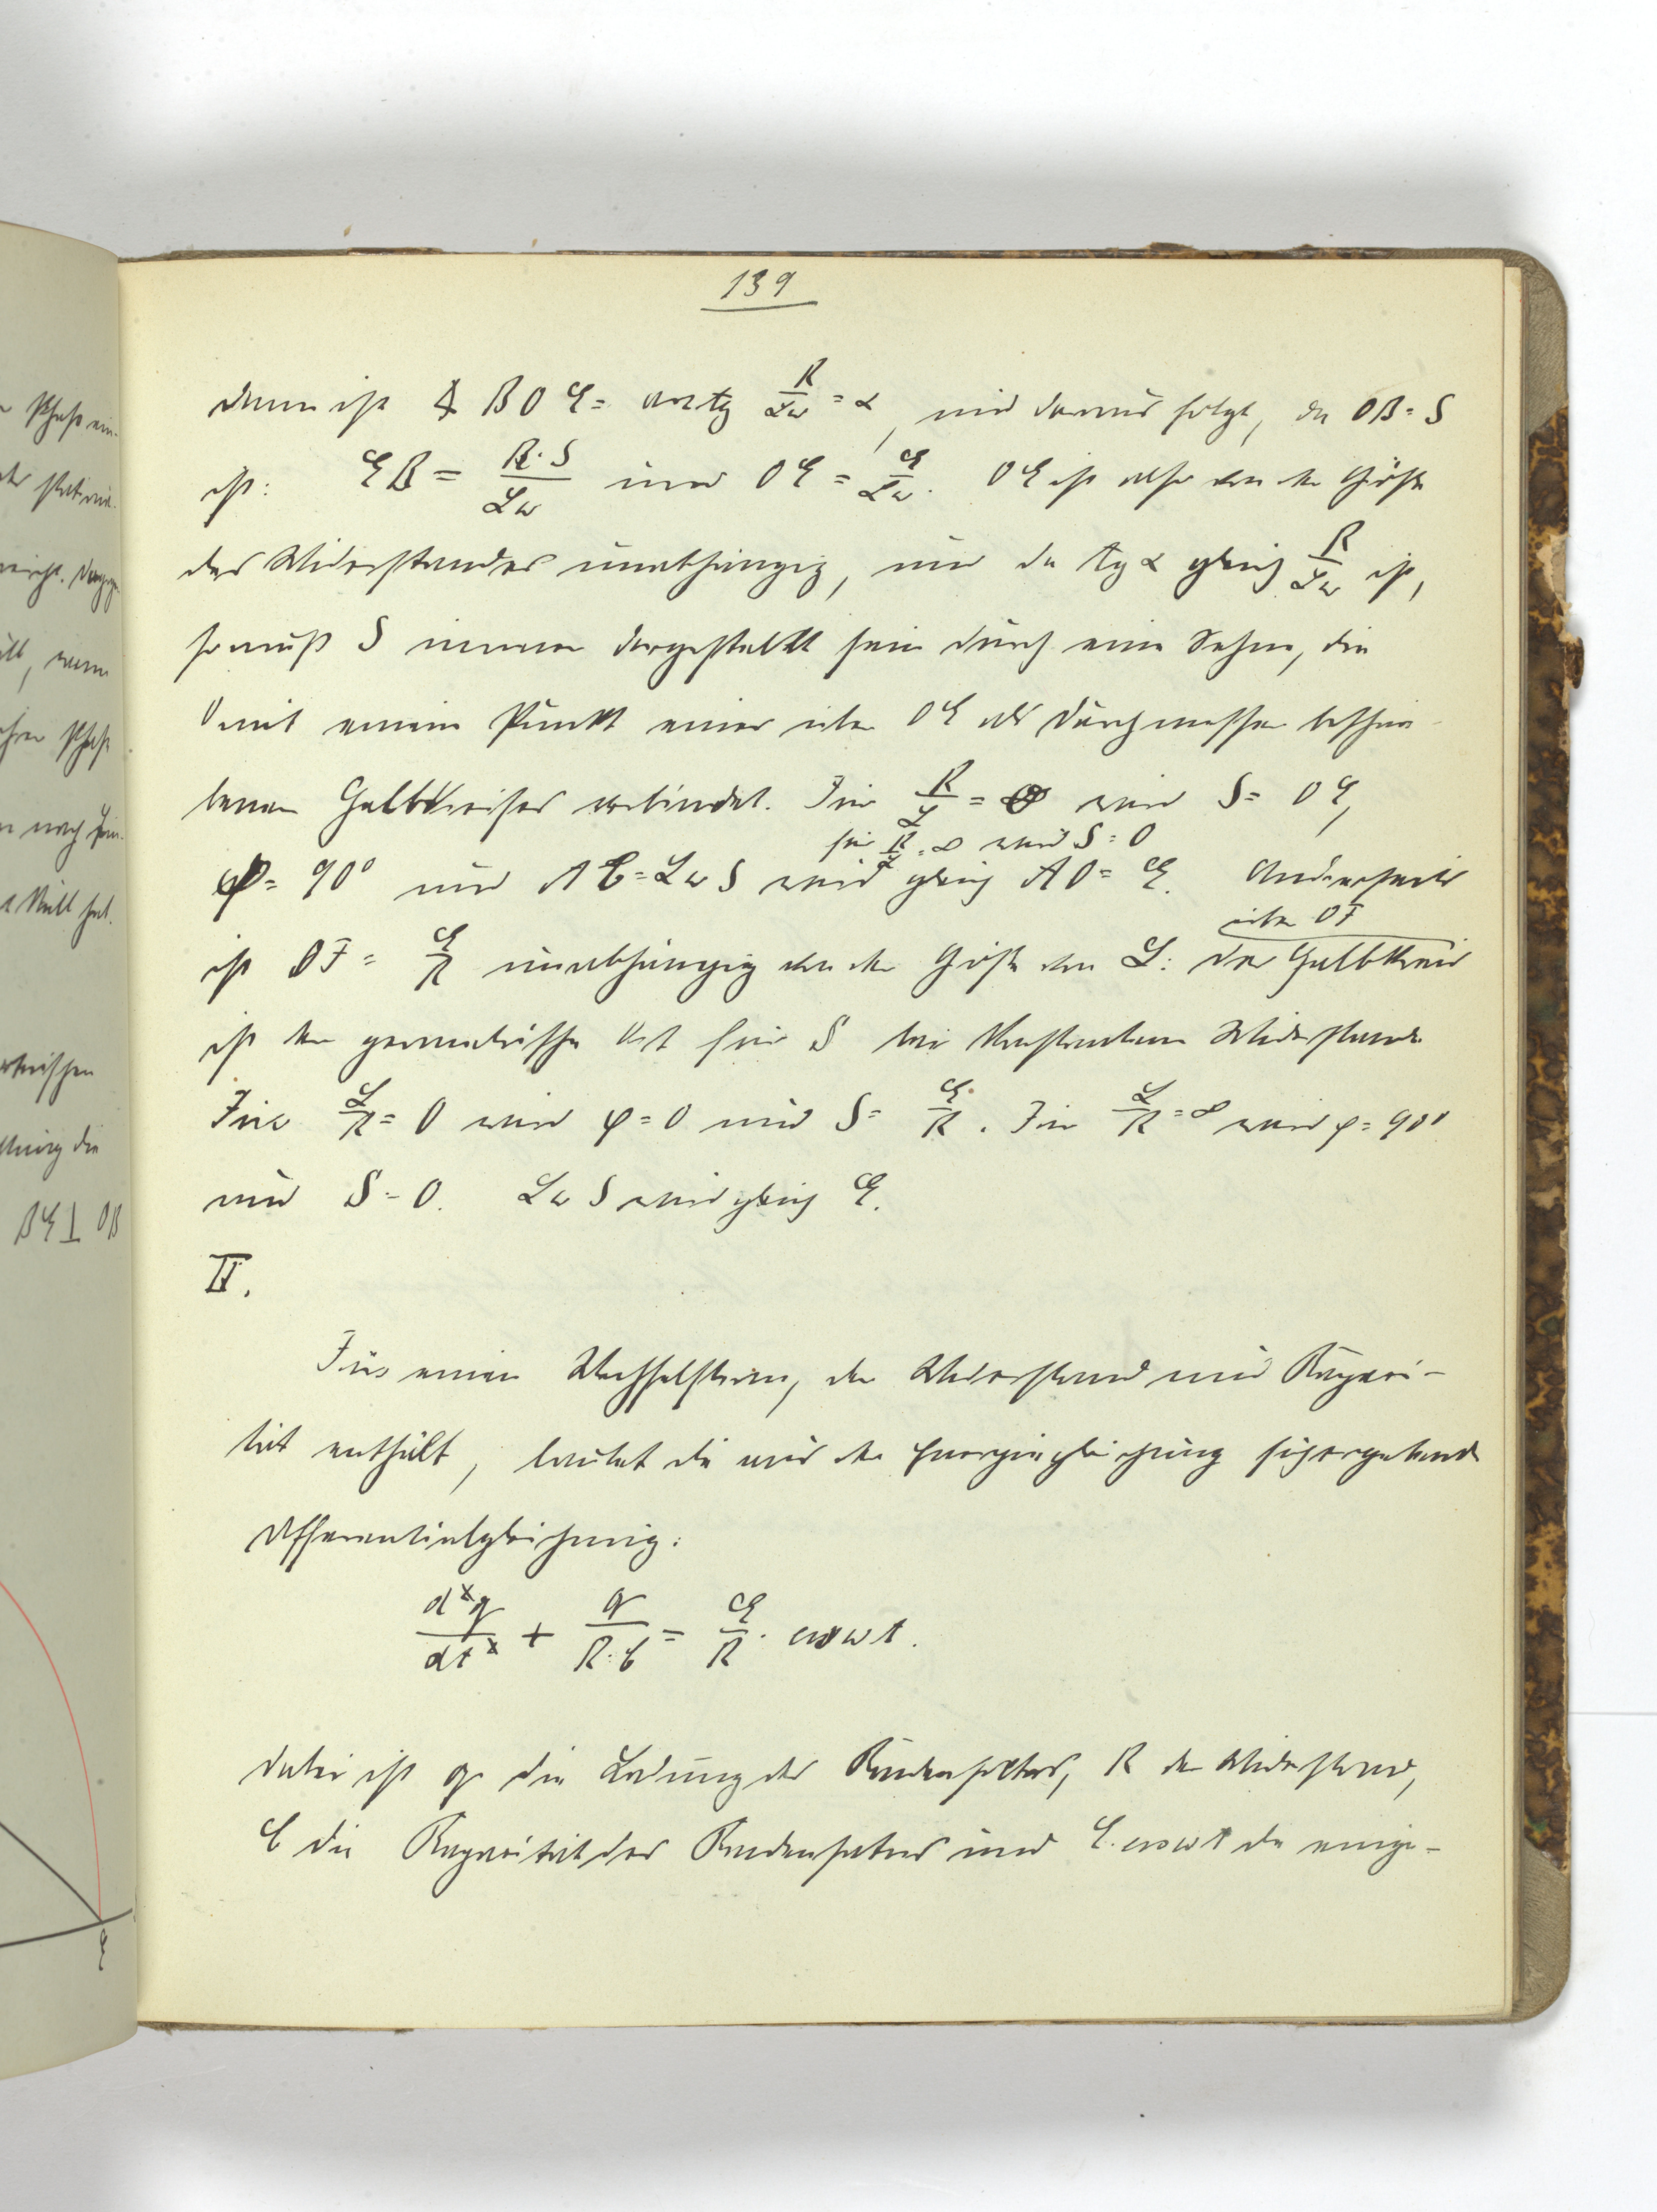 139
dann ist ∢ BOE = arctg R/Lω = α, und daraus folgt, da OB = S
ist: EB = R·S/Lω und OE = E/Lω. OE ist also von der Größe
des Widerstandes unabhängig, und da tg α gleich R/Lω ist,
so muß S immer dargestellt sein durch eine Sehne, die
O mit einem Punkt eines über OE als Durchmesser beschrie-
benen Halbkreises verbindet. Für R/L = 0 wird S = OE,
für R/L = ∞ wird S = 0
φ = 90° und AC = LωS wird gleich AO = E. Anderseits
über OF
ist OF = E/R unabhängig von der Größe von L: der Halbkreis
ist der geometrische Ort für S bei konstantem Widerstande
Für L/R = 0 wird φ = 0 und S = E/R. Für L/R = ∞ wird φ = 90°
und S = 0. LωS wird gleich E.
II.
Für einen Wechselstrom, der Widerstand und Kapazi-
tät enthält, lautet die aus der Energiegleichung sich ergebende
Differentialgleichung:
dq/dt + q/R·C = E/R · cos ωt.
dabei ist q die Ladung des Kondensators, R der Widerstand,
C die Kapazität des Kondensators und E·cos ωt die einge-
Phase ein-
statt, wenn
nach hin-
Null hat.
die
BE ⊥ OB
E